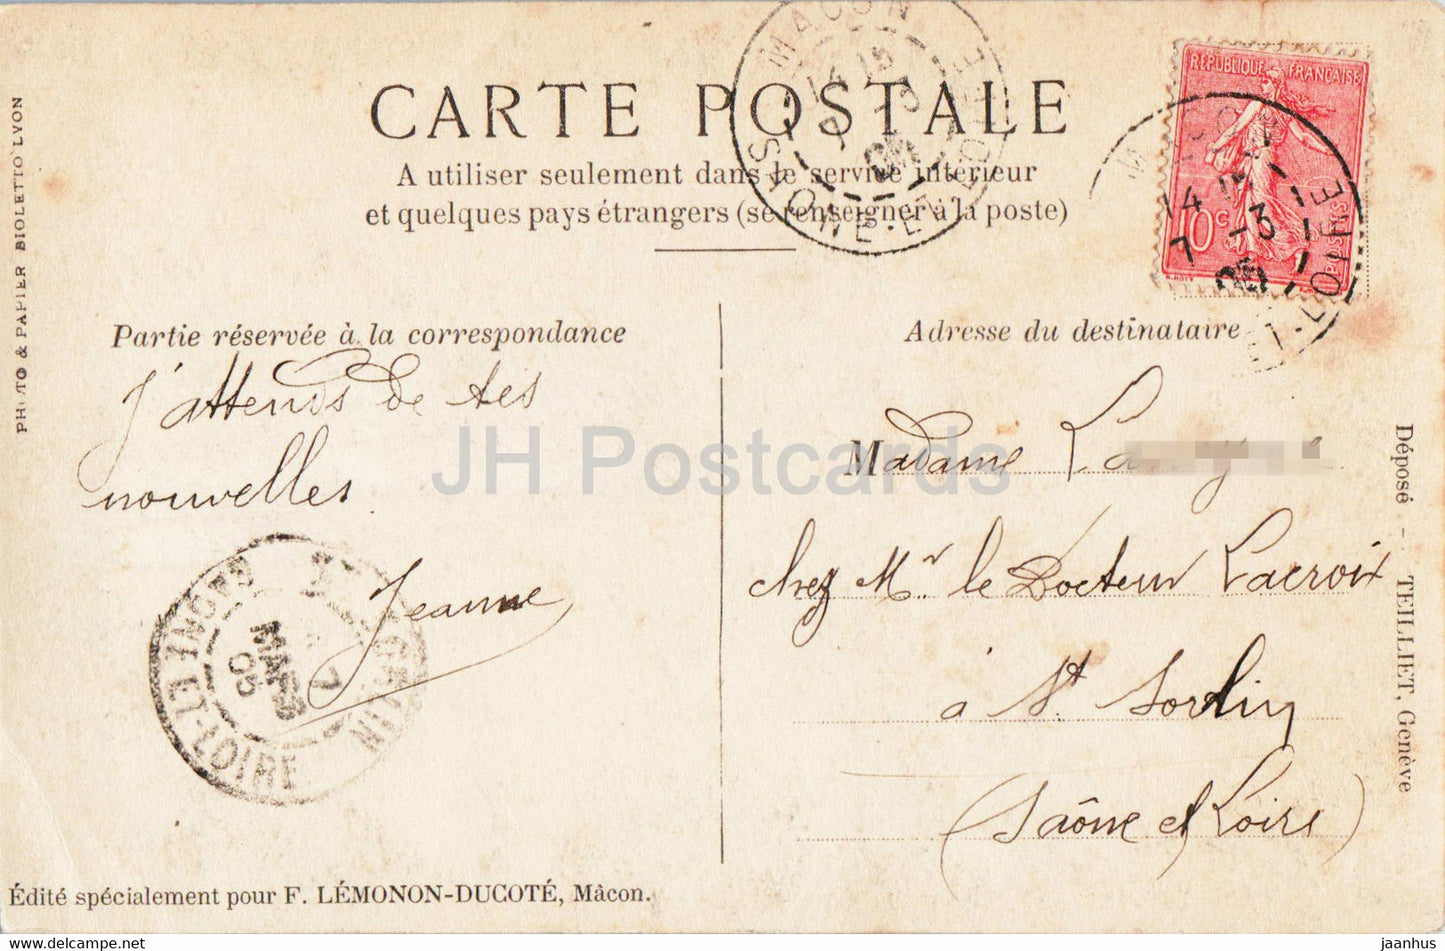 CARTE POSTALE
A utiliser seulement dans le service intérieur
et quelques pays étrangers (se renseigner à la poste)
MACON
14 15
7 -3
05
SAONE-ET-LOIRE
REPUBLIQUE FRANÇAISE
10c
POSTES
14 15
7 -3
05
ET-LOIRE
PHOTO & PAPIER BIOLETTO LYON
Partie réservée à la correspondance
J'attends de tes
nouvelles
Jeanne
7
MARS
05
SAONE ET-LOIRE
Adresse du destinataire
Madame
chez Mr le Docteur Lacroix
à St Sorlin
(Saône et Loire)
Déposé - TEILLIET, Genève
Édité spécialement pour F. LÉMONON-DUCOTÉ, Mâcon.
JH Postcards
www.delcampe.net
jaanhus